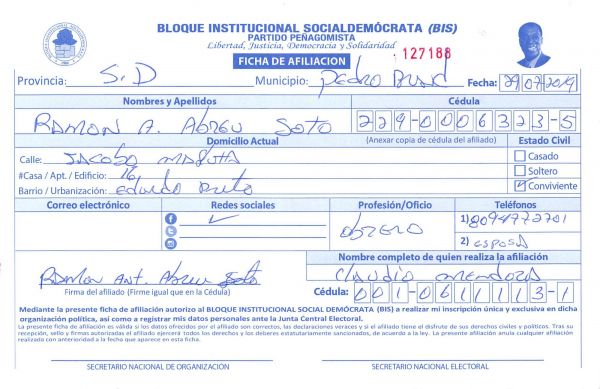 BLOQUE INSTITUCIONAL SOCIALDEMÓCRATA (BIS)
PARTIDO PEÑAGOMISTA
Libertad, Justicia, Democracia y Solidaridad
127188
FICHA DE AFILIACION
Provincia: S.D Municipio: Pedro Brand Fecha: 29/07/2019
Nombres y Apellidos Cédula
Ramon A. Abreu Soto 229-0006323-5
Domicilio Actual (Anexar copia de cédula del afiliado) Estado Civil
Calle: Jacobo Casado
#Casa / Apt. / Edificio: 16 Soltero
Barrio / Urbanización: Eduardo Brito Conviviente
Correo electrónico Redes sociales Profesión/Oficio Teléfonos
obrero 1) 8094772701
2) esposa
Nombre completo de quien realiza la afiliación
Ramon Ant. Abreu Soto Claudio Mendoza
Firma del afiliado (Firme igual que en la Cédula) Cédula: 001-0611113-1
Mediante la presente ficha de afiliación autorizo al BLOQUE INSTITUCIONAL SOCIAL DEMÓCRATA (BIS) a realizar mi inscripción única y exclusiva en dicha
organización política, así como a registrar mis datos personales ante la Junta Central Electoral.
La presente ficha de afiliación es válida si los datos ofrecidos por el afiliado son correctos, las declaraciones veraces y si el afiliado tiene el disfrute de sus derechos civiles y políticos. Tras su
recepción, sello y firmas autorizadas el afiliado ejercerá todos los derechos y los deberes estatutariamente sancionados, de acuerdo a la ley. La presente afiliación anula cualquier afiliación
realizada con anterioridad a la fecha que aparece en esta ficha.
SECRETARIO NACIONAL DE ORGANIZACIÓN SECRETARIO NACIONAL ELECTORAL